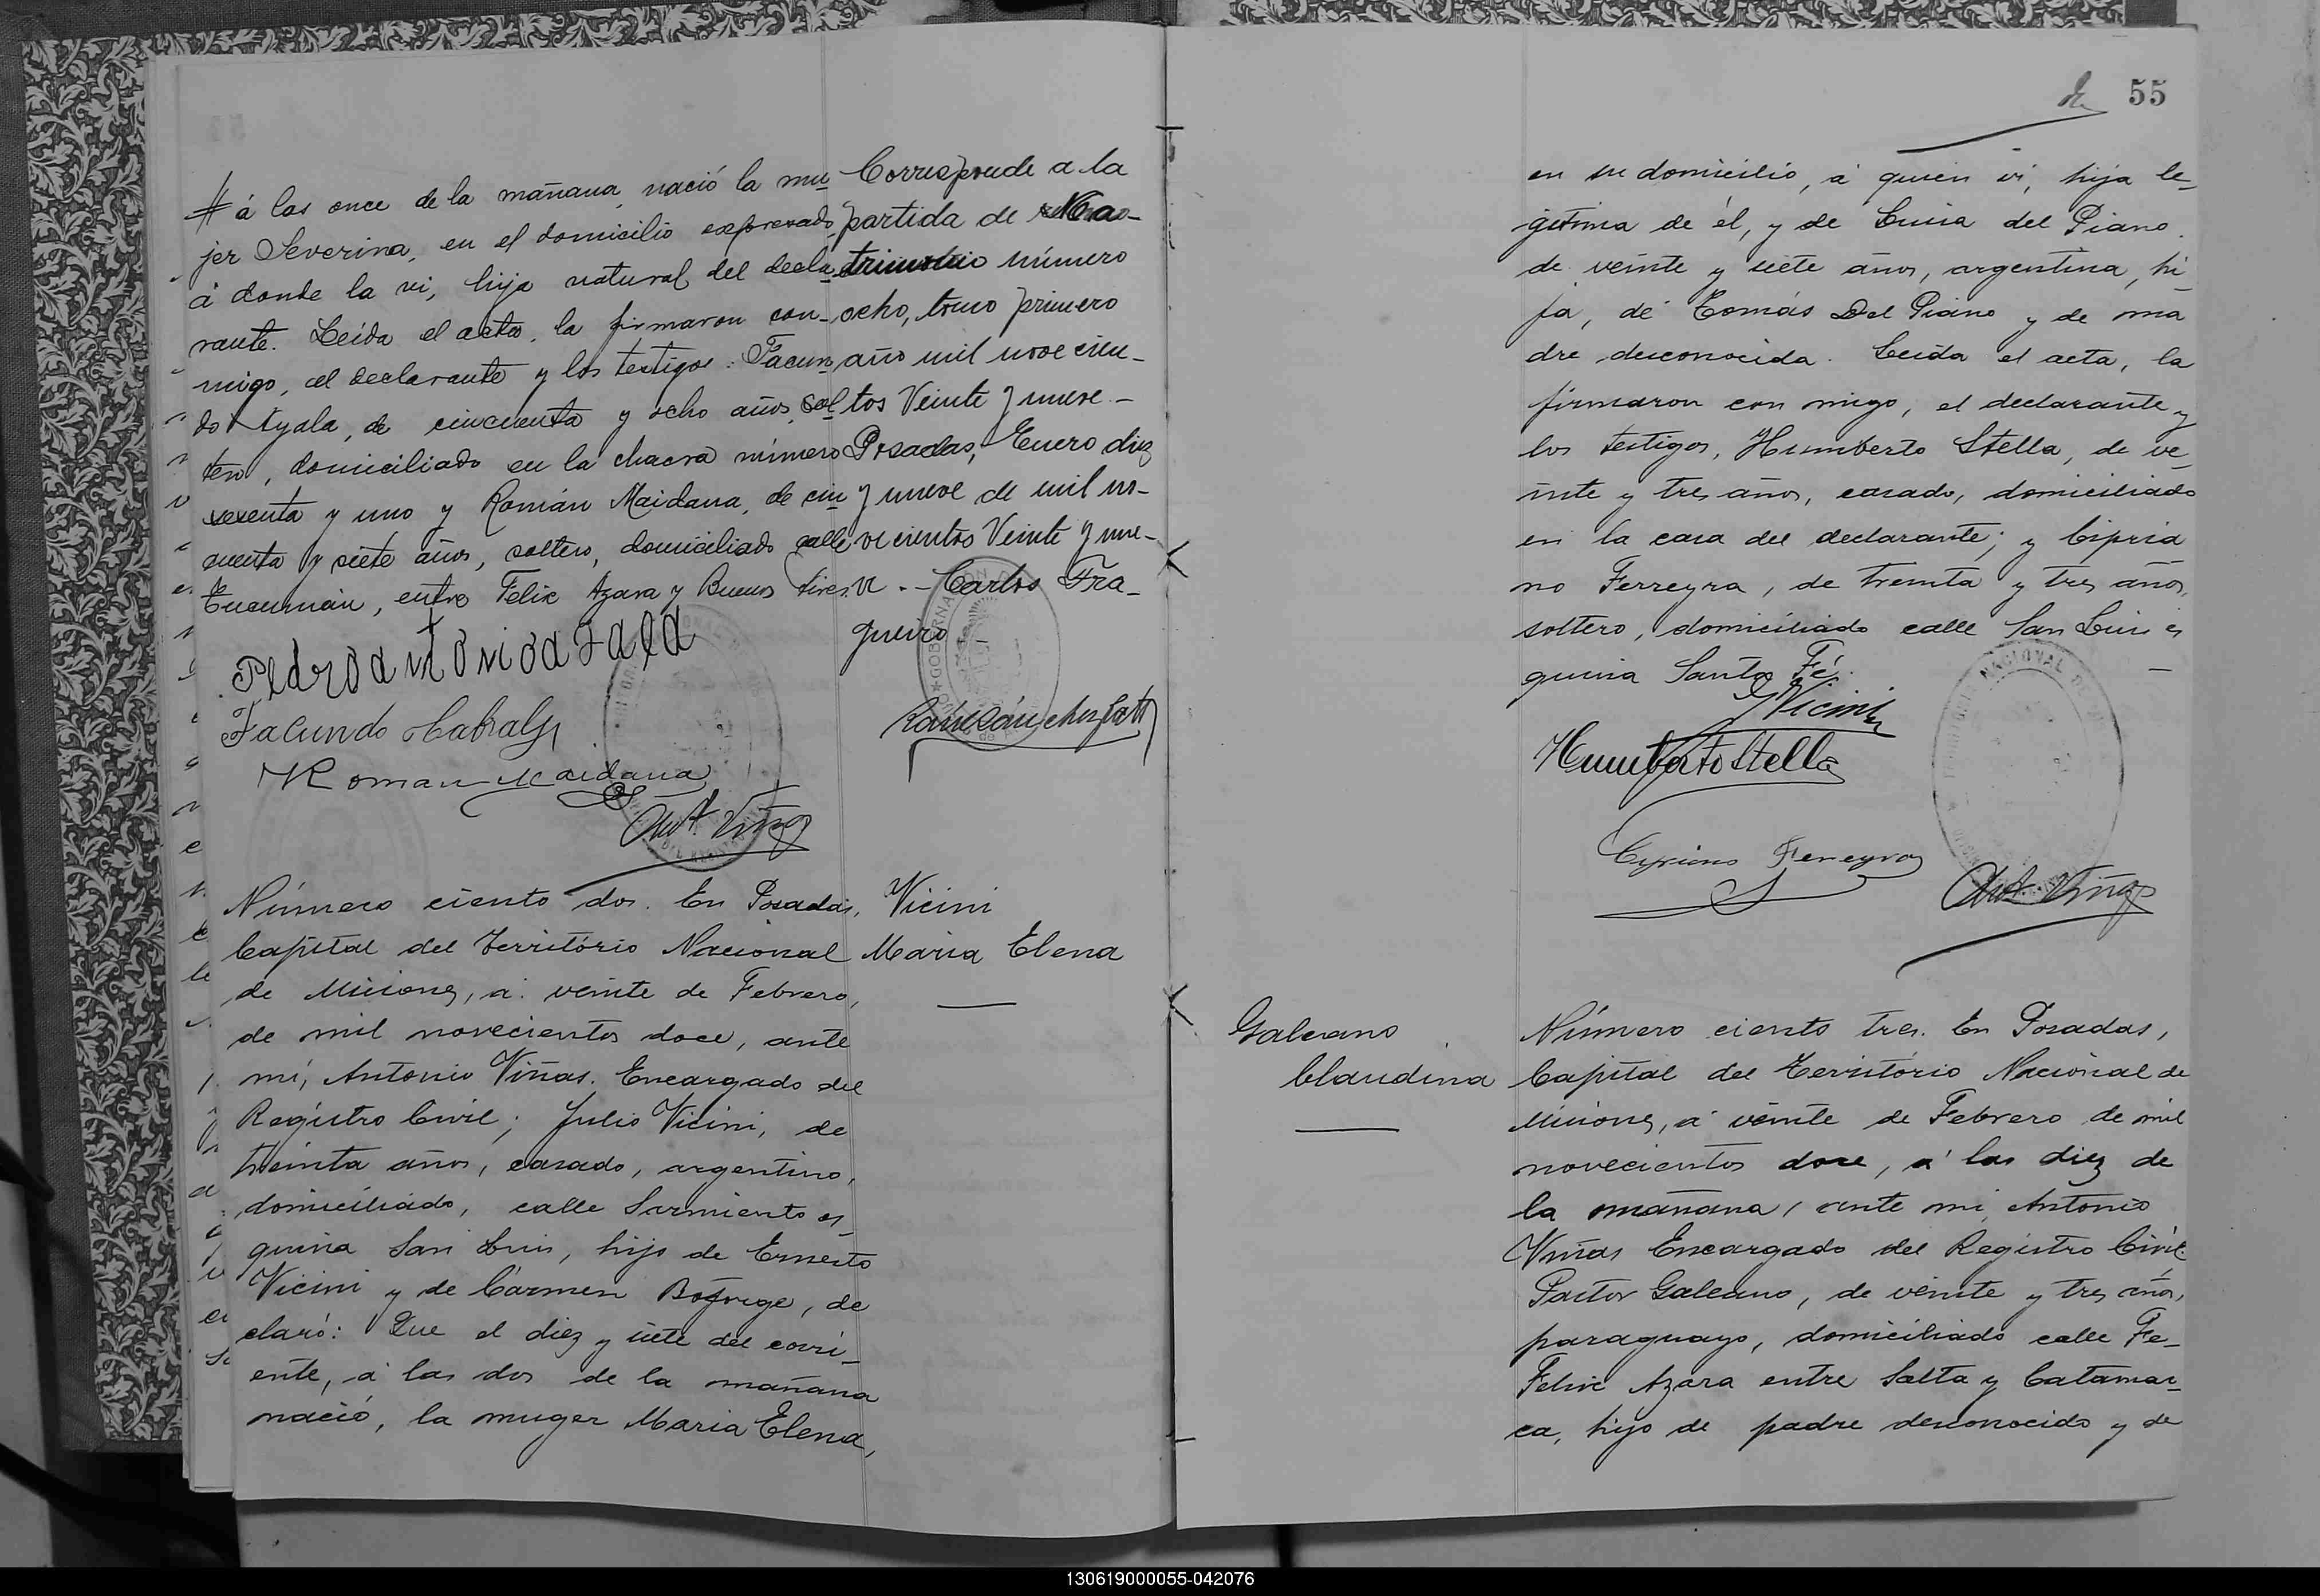 á las once de la mañana, nació la mu
jer Severina, en el domicilio expresado,
á donde la vi, hija natural del decla
rante. Leída el acta, la firmaron con
migo, el declarante y los testigos: Facun
do Ayala, de cincuenta y ocho años, sol
tero, domiciliado en la chacra número
sesenta y uno y Román Maidana, de cin
cuenta y siete años, soltero, domiciliado calle
Tucumán, entre Felix Azara y Buenos Aires.
Corresponde a la
partida de Ma-
trimonio número
ocho, tomo primero
año mil novecien-
tos Veinte y nueve.-
Posadas, Enero diez
y nueve de mil no-
vecientos Veinte y nue-
ve.- Carlos Fra-
gueiro
Pedro antonio aϒala
Facundo Cabral
Roman Maidana
Ant. Viñas
Número ciento dos. En Posadas,
Capital del Território Nacional
de Misiones, á veinte de Febrero,
de mil novecientos doce, ante
mí, Antonio Viñas. Encargado del
Registro Civil; Julio Vicini, de
treinta años, casado, argentino,
domiciliado, calle Sarmiento es
quina San Luis, hijo de Ernesto
Vicini y de Cármen Bojorge, de
claró: Que el diez y siete del corri-
ente, á las dos de la mañana
nació, la muger Maria Elena,
Vicini
Maria Elena
55
en su domicilio, á quien vi, hija le-
gitima de él, y de Lucia del Piano.
de veinte y siete años, argentina, hi-
ja, de Tomás Del Piano y de ma
dre desconocida. Leida el acta, la
firmaron con migo, el declarante y
los testigos, Humberto Stella, de ve-
inte y tres años, casado, domiciliado
en la casa del declarante; y Cipria
no Ferreyra, de treinta y tres años,
soltero, domiciliado calle San Luis es
quina Santa Fé.
JVicini
Humberto Stella
Cipriano Ferreyra
Ant. Viñas
Galeano
Claudina
Número ciento tres. En Posadas,
Capital del Território Nacional de
Misiones, á veinte de Febrero de mil
novecientos doce, á las diez de
la mañana, ante mi Antonio
Viñas Encargado del Registro Civil.
Pastor Galeano, de veinte y tres años,
paraguayo, domiciliado calle Fe-
Felix Azara entre Salta y Catamar-
ca, hijo de padre desconocido y de
130619000055-042076